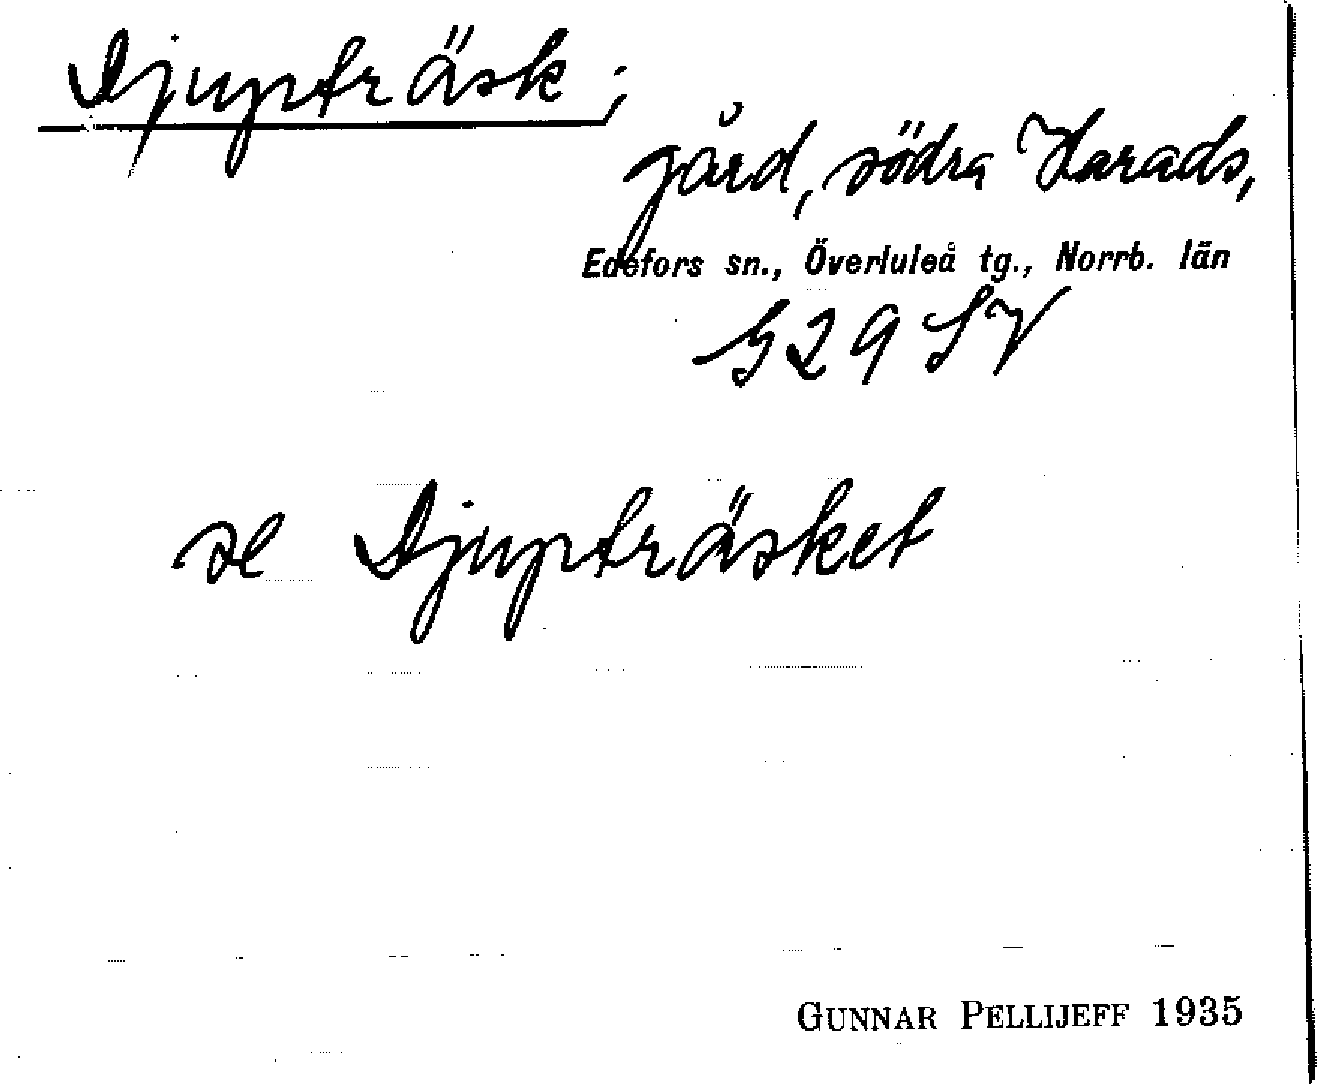 Djupträsk;
gård, södra Harads,
Edefors sn., Överluleå tg., Norrb. län
S29 SV
se Djupträsket
GUNNAR PELLIJEFF 1935